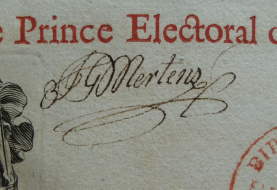 Prince Electoral
JGMertens
BI